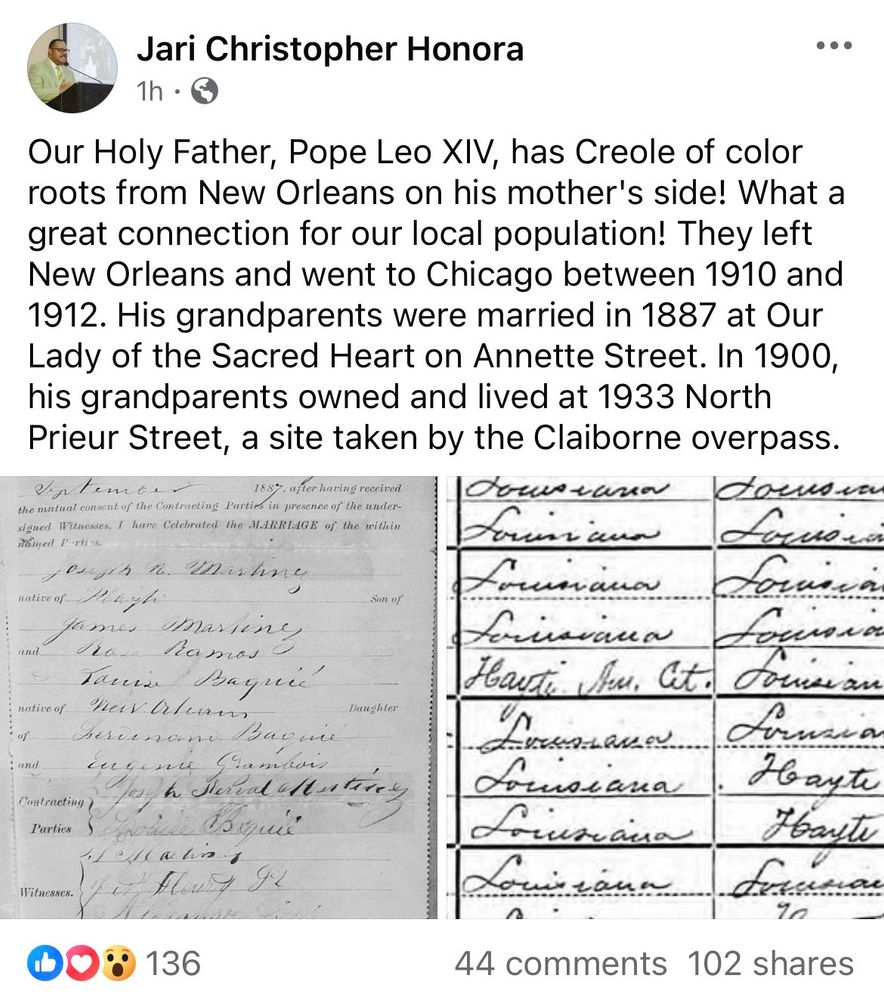 Jari Christopher Honora
1h ·
Our Holy Father, Pope Leo XIV, has Creole of color
roots from New Orleans on his mother's side! What a
great connection for our local population! They left
New Orleans and went to Chicago between 1910 and
1912. His grandparents were married in 1887 at Our
Lady of the Sacred Heart on Annette Street. In 1900,
his grandparents owned and lived at 1933 North
Prieur Street, a site taken by the Claiborne overpass.
September 1887, after having received
the mutual consent of the Contracting Parties in presence of the under-
signed Witnesses, I have Celebrated the MARRIAGE of the within
named Parties.
Joseph N. Martinez
native of Hayti Son of
James Martinez
and Rosa Ramos
Louise Baquié
native of New Orleans Daughter
of Baquié
and Eugenie Grambois
Contracting Joseph
Parties Louise Baquié
Witnesses.
Louisiana
Louisiana
Louisiana
Louisiana
Hayti Am. Cit. Louisian
Louisiana
Louisiana Hayte
Louisiana Hayte
Louisiana
136 44 comments 102 shares